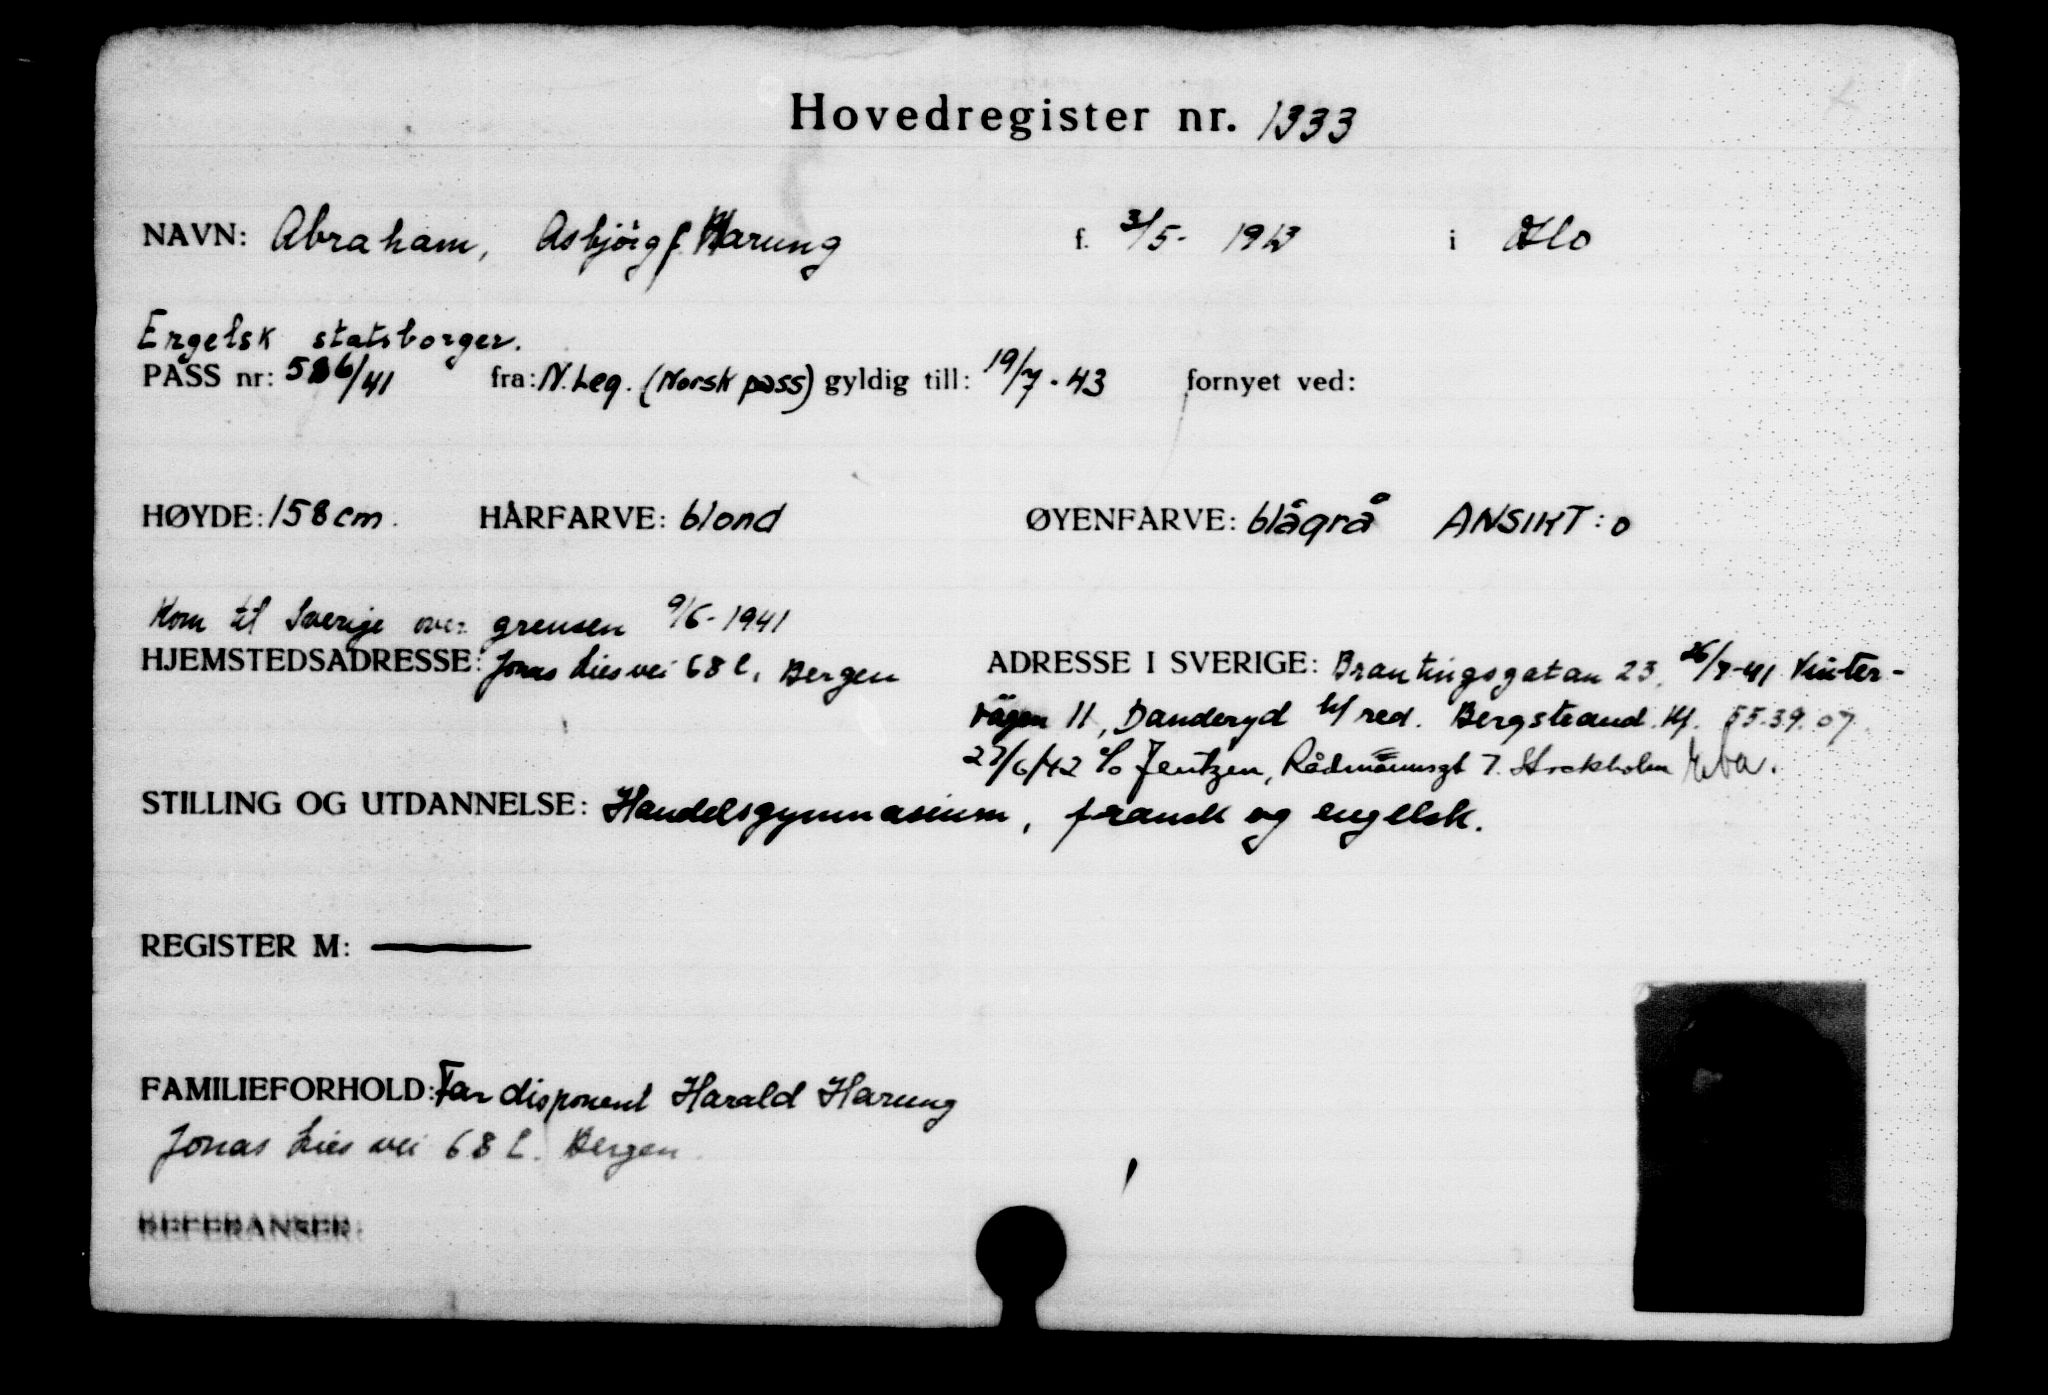 Hovedregister nr. 1333
NAVN: Abraham, Asbjörg f. Harung f. 3/5- 1913 i Oslo
Engelsk statsborger.
PASS nr: 586/41 fra: N. Leg. (Norsk pass) gyldig till: 19/7-43 fornyet ved:
HØYDE: 158 cm. HÅRFARVE: blond ØYENFARVE: blågrå ANSIKT: o
Kom til Sverige over grensen 9/6-1941
HJEMSTEDSADRESSE: Jonas Lies vei 68 l, Bergen ADRESSE I SVERIGE: Brantingsgatan 23, 26/7-41 Vinter-
vägen 11, Danderyd h/ red. Bergstrand. tlf. 55.39.07
27/6/42 c/o Jentzen, Rådmannsgt 7. Stockholm
STILLING OG UTDANNELSE: Handelsgymnasium, fransk og engelsk.
REGISTER M: —
FAMILIEFORHOLD: Far disponent Harald Harung
Jonas Lies vei 68 l. Bergen.
REFERANSER: